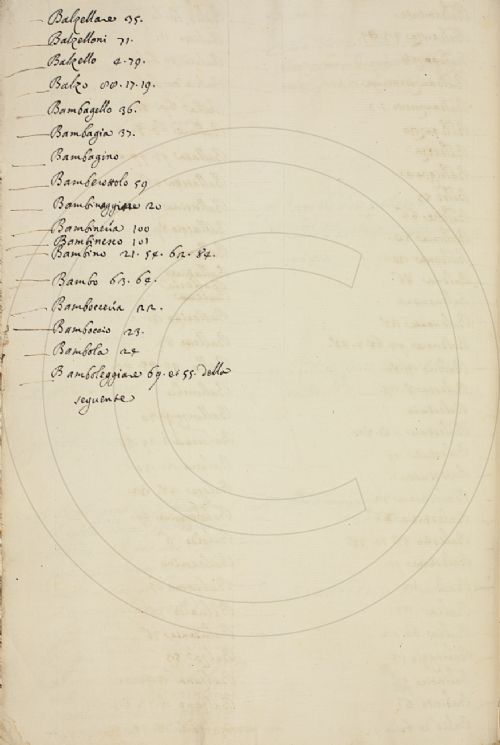 Balzellare 35.
Balzelloni 71.
Balzello 4.79.
Balzo 88.17.19.
Bambagello 36.
Bambagia 37.
Bambagino
Bamberottolo 59
Bambineggiare 20
Bambineria 100
Bambinesco 101
Bambino 21.54.62.84.
Bambo 63.64.
Bambocceria 22.
Bamboccio 23.
Bambola 24
Bamboleggiare 69. et 55. della
seguente